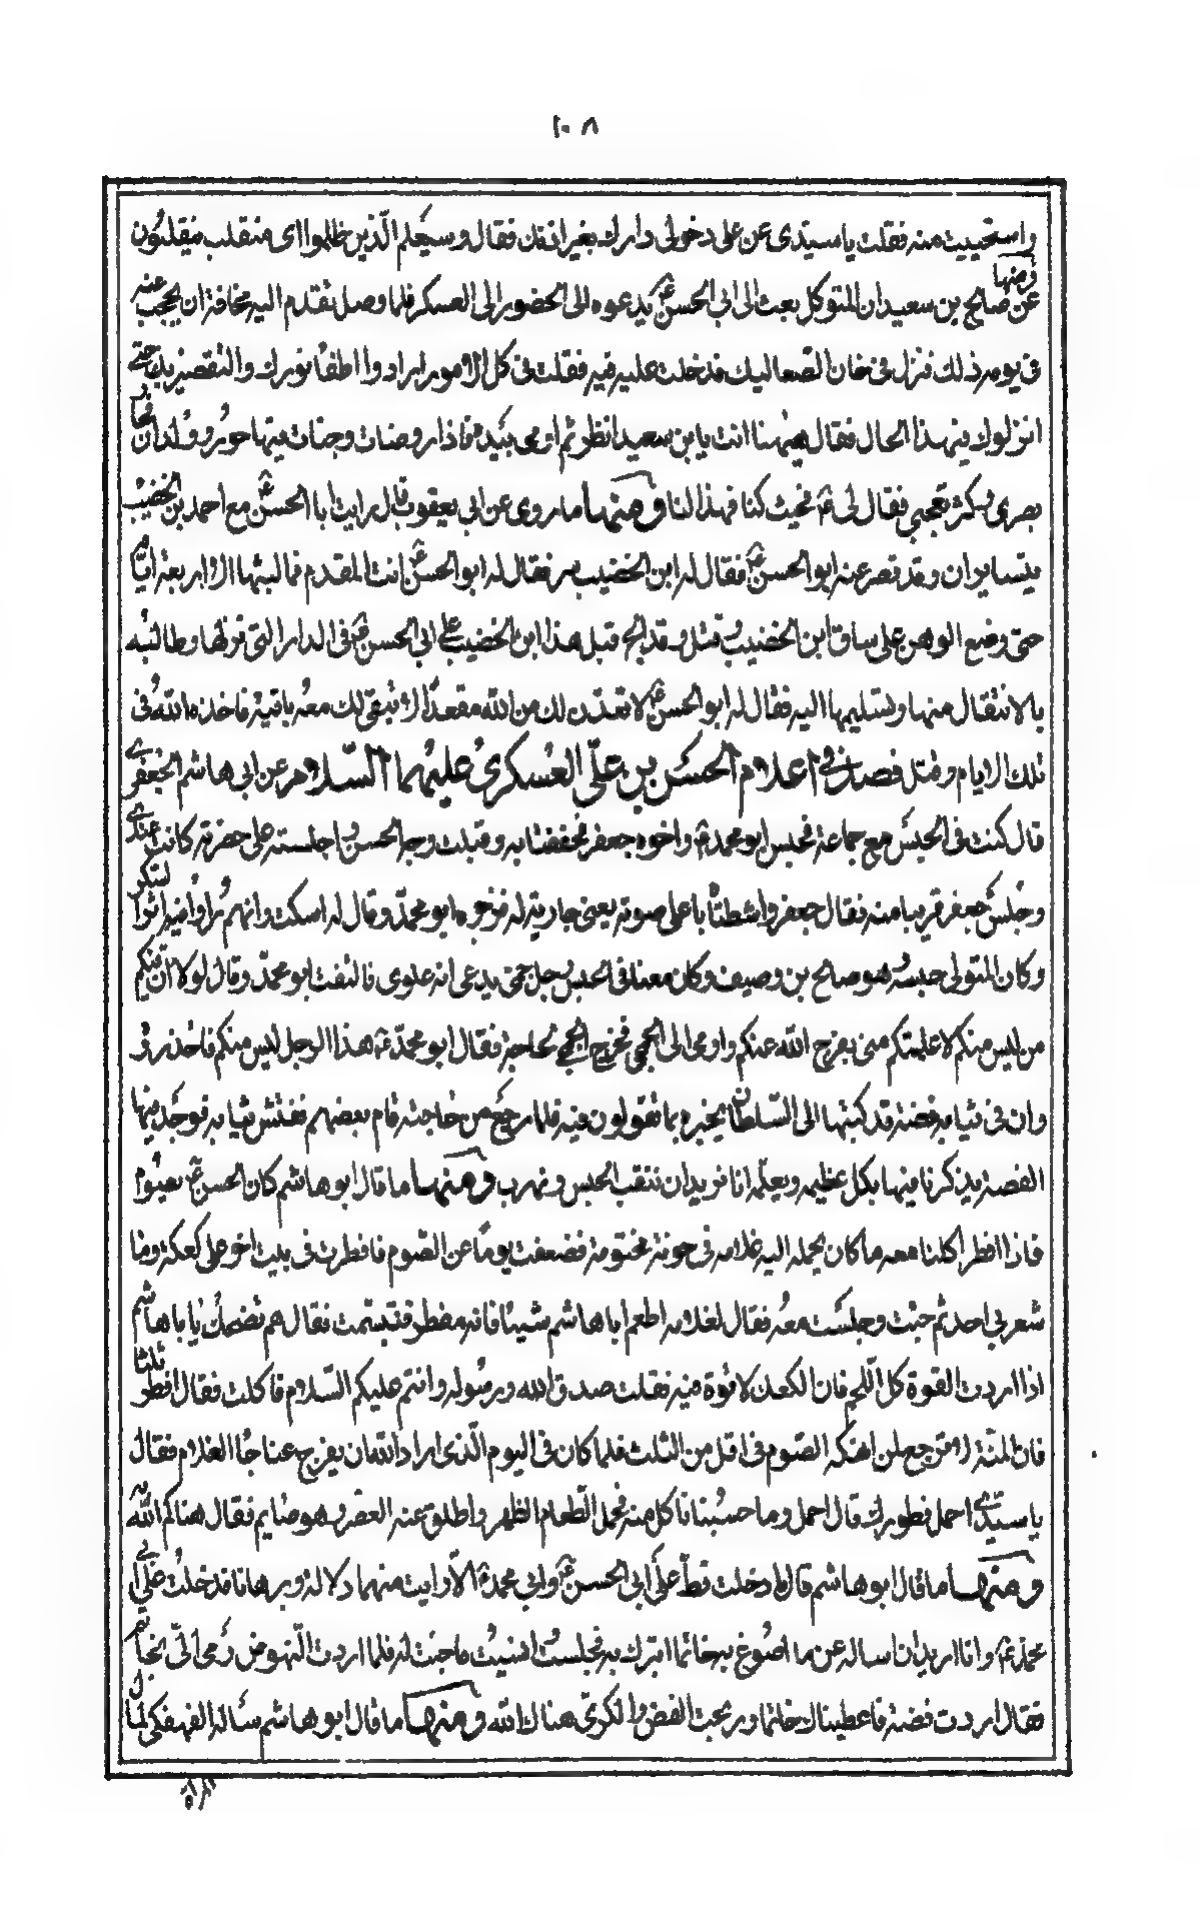 ١٠٨
واستحييت منه فقلت يا سيدى عن على دخولى دارك بغير اذنك فقال وسيعلم الّذين ظلموا اى منقلب ينقلبون
ومنها
عن صالح بن سعيد ان المتوكل بعث الى ابى الحسن ع يدعوه الى الحضور الى العسكر فلما وصل تقدم اليه مخافة ان يحجب عنه
فى يومه ذلك فنزل فى خان الصّعاليك فدخلت عليه فيه فقلت فى كل الامور ارادوا اطفاء نورك والتقصير بك حتى
انزلوك فى هذا الخان فقال ههنا انت يا بن سعيد انظر ثم اومى بيده فاذا روضات وجنات فيها حور وولدان فحار
بصرى وكثر تعجبى فقال لى ع حيث كنا فهذا لنا ومنها ما روى عن ابى يعقوب قال رايت ابا الحسن ع مع احمد بن الخضيب
يتسايران وقد قصر عنه ابو الحسن ع فقال له ابن الخضيب سر فقال له ابو الحسن ع انت المقدم فما لبثنا الا اربعة ايام
حتى وضع الوهن على ساق ابن الخضيب وقتل وقد الح قبل هذا ابن الخضيب على ابى الحسن ع فى الدار التى نزلها وطالبه
بالانتقال منها وتسليمها اليه فقال له ابو الحسن ع لاقعدن لك من الله مقعدا لا تبقى لك معه باقية فاخذه الله فى
تلك الايام وقتل فصل فى اعلام الحسن بن علّى العسكرى عليهما السّلام عن ابى هاشم الجعفرى
قال كنت فى الحبس مع جماعة فحبس ابو محمد ع واخوه جعفر فخففنا به وقبلت وجه الحسن واجلسته على حضرته كانت عندى
وجلس جعفر قريبا منه فقال جعفر واشطناه باعلى صوته يعنى جارية له فزجره ابو محمد وقال له اسكت وانهم راوا فيه اثر السكر
وكان المتولى حبسه هو صالح بن وصيف وكان معنا فى الحبس رجل جمحى يدعى انه علوى فالتفت ابو محمد وقال لولا ان فيكم
من ليس منكم لاعلمتكم متى يفرج الله عنكم واومى الى الجمحى فخرج الجمحى لحاجة فقال ابو محمد ع هذا الرجل ليس منكم فاحذروه
وان فى ثيابه قصة قد كتبها الى السّلطان يخبره بما تقولون فيه فلما رجع من حاجته قام بعضهم ففتش ثيابه فوجد فيها
القصة يذكرنا فيها بكل عظيمة ويعلمه انا نريد ان ننقب الحبس ونهرب ومنها ما قال ابو هاشم كان الحسن ع يصوم
فاذا افطر اكلنا معه ما كان يحمله اليه غلامه فى جونة مختومة فضعفت يوما عن الصّوم فافطرت فى بيت اخر على كعكة وما
شعر بى احد ثم جئت وجلست معه فقال لغلامه اطعم ابا هاشم شيئا فانه مفطر فتبسمت فقال مم تضحك يا ابا هاشم
اذا اردت القوة كل اللحم فان الكعك لا قوة فيه فقلت صدق الله ورسوله وانتم عليكم السّلام فاكلت فقال افطر ثلثا
فان المنّة لا ترجع لمن انهكه الصّوم فى اقل من الثلث فلما كان فى اليوم الّذى اراد الله ان يفرج عنا جاء الغلام فقال
يا سيدى احمل فطورك قال احمل وما احسبنا ناكل منه فحمل الطّعام الظهر واطلق عنه العصر وهو صايم فقال هناكم الله
ومنها ما قال ابو هاشم قال ما دخلت قط على ابى الحسن ع وابى محمد ع الّا رايت منهما دلالة وبرهانا فدخلت على ابى
محمد ع وانا اريد ان اساله عن ما اصوغ به خاتما اتبرك به فجلست وانسيت ما جئت له فلما اردت النّهوض رمى الىّ بخاتم
فقال اردت فضة فاعطيناك خاتما وربحت الفص والكرى هناك الله ومنها ما قال ابو هاشم ساله الفهفكى ما بال
المراة